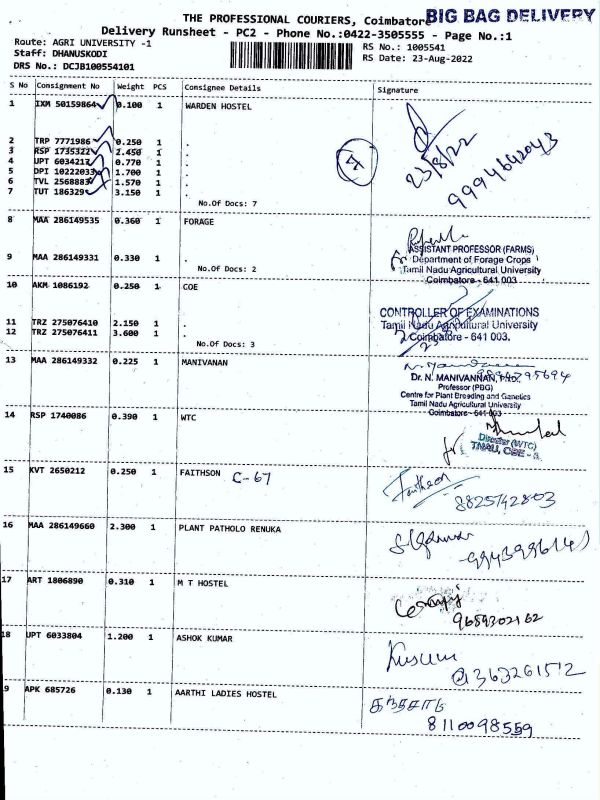 THE PROFESSIONAL COURIERS, Coimbatore BIG BAG DELIVERY
Delivery Runsheet - PC2 - Phone No.:0422-3505555 - Page No.:1
Route: AGRI UNIVERSITY -1
Staff: DHANUSKODI
DRS No.: DCJB100554101
RS No.: 1005541
RS Date: 23-Aug-2022
S No Consignment No Weight PCS Consignee Details Signature
1 IXM 50159864 0.100 1 WARDEN HOSTEL
2 TRP 7771986 0.250 1 .
3 RSP 1735322 2.450 1 .
4 UPT 6034217 0.770 1 .
5 DPI 10222033 1.700 1 .
6 TVL 2568883 1.570 1 .
7 TUT 186329 3.150 1 .
No.Of Docs: 7
7
23/8/22
9994642043
8 MAA 286149535 0.360 1 FORAGE
9 MAA 286149331 0.330 1 .
No.Of Docs: 2
ASSISTANT PROFESSOR (FARMS)
Department of Forage Crops
Tamil Nadu Agricultural University
Coimbatore - 641 003
10 AKM 1086192 0.250 1 COE
11 TRZ 275076410 2.150 1 .
12 TRZ 275076411 3.600 1 .
No.Of Docs: 3
CONTROLLER OF EXAMINATIONS
Tamil Nadu Agricultural University
Coimbatore - 641 003.
13 MAA 286149332 0.225 1 MANIVANAN
Dr. N. MANIVANNAN, Ph.D.,
Professor (PBG)
Centre for Plant Breeding and Genetics
Tamil Nadu Agricultural University
Coimbatore - 641 003
14 RSP 1740086 0.390 1 WTC
Director (WTC)
TNAU, CBE - 3.
15 KVT 2650212 0.250 1 FAITHSON C-67
Faithson
8825742803
16 MAA 286149660 2.300 1 PLANT PATHOLO RENUKA
17 ART 1806890 0.310 1 M T HOSTEL
9659302162
18 UPT 6033804 1.200 1 ASHOK KUMAR
19 APK 685726 0.130 1 AARTHI LADIES HOSTEL
8110098559